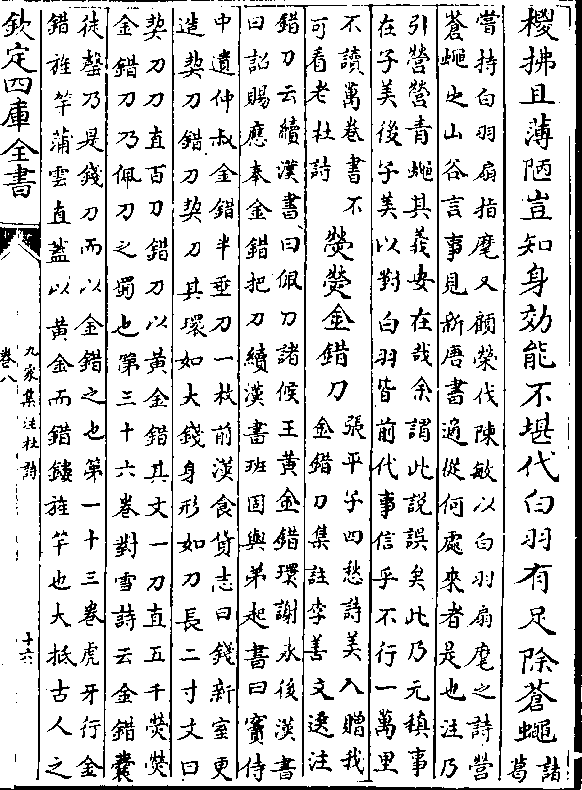 椶拂且薄陋豈知身効能不堪代白羽有足除蒼蠅諸葛
嘗持白羽扇指麾又顧榮伐陳敏以白羽扇麾之詩營
蒼蠅也山谷言事見新唐書適從何處來者是也注乃
引營營青蠅其義安在哉余謂此說誤矣此乃元稹事
在子美後子美以對白羽皆前代事信乎不行一萬里
不讀萬卷書不
可看老杜詩
熒熒金錯刀
張平子四愁詩美人贈我
金錯刀集註李善文選注
錯刀云續漢書曰佩刀諸侯王黃金錯環謝承後漢書
曰詔賜應奉金錯把刀續漢書班固與弟起書曰竇侍
中遺仲叔金錯半垂刀一枚前漢食貨志曰錢新室更
造契刀錯刀契刀其環如大錢身形如刀長二寸文曰
契刀刀直百刀錯刀以黃金錯其文一刀直五千熒熒
金錯刀乃佩刀之蜀也第三十六卷對雪詩云金錯囊
徒罄乃是錢刀而以金錯之也第一十三卷虎牙行金
錯旌竿蒲雲直蓋以黃金而錯鏤旌竿也大抵古人之
欽定四庫全書
九家集注杜詩
卷八
十六